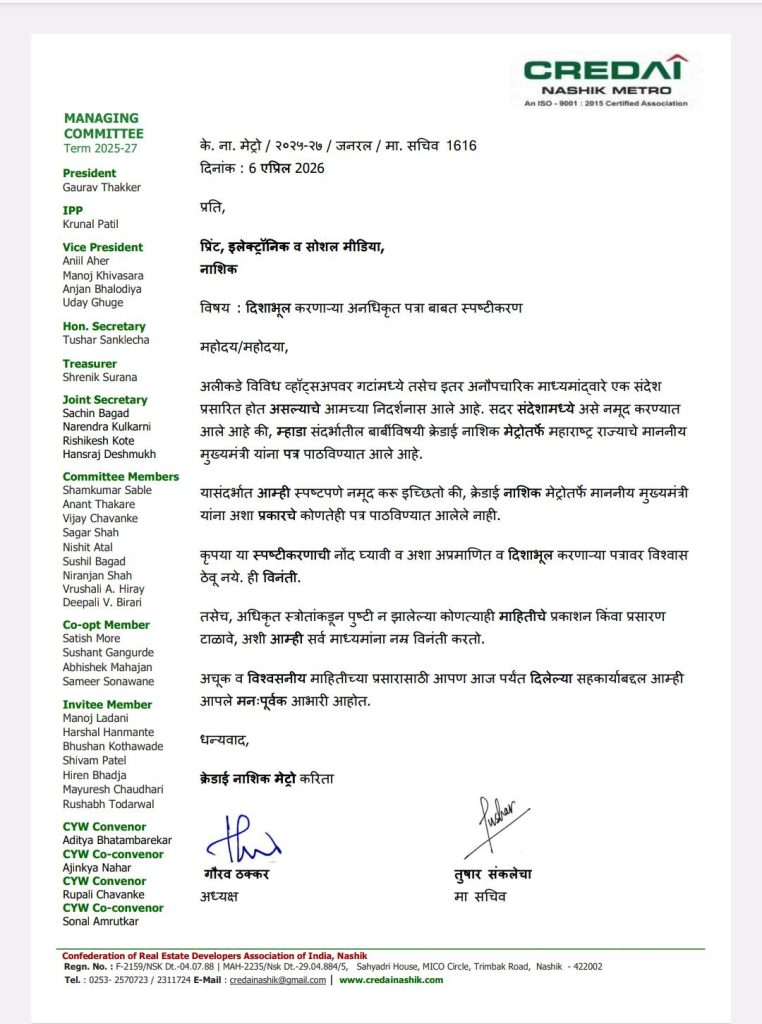 CREDAI
NASHIK METRO
An ISO - 9001 : 2015 Certified Association
MANAGING
COMMITTEE
Term 2025-27
President
Gaurav Thakker
IPP
Krunal Patil
Vice President
Aniil Aher
Manoj Khivasara
Anjan Bhalodiya
Uday Ghuge
Hon. Secretary
Tushar Sanklecha
Treasurer
Shrenik Surana
Joint Secretary
Sachin Bagad
Narendra Kulkarni
Rishikesh Kote
Hansraj Deshmukh
Committee Members
Shamkumar Sable
Anant Thakare
Vijay Chavanke
Sagar Shah
Nishit Atal
Sushil Bagad
Niranjan Shah
Vrushali A. Hiray
Deepali V. Birari
Co-opt Member
Satish More
Sushant Gangurde
Abhishek Mahajan
Sameer Sonawane
Invitee Member
Manoj Ladani
Harshal Hanmante
Bhushan Kothawade
Shivam Patel
Hiren Bhadja
Mayuresh Chaudhari
Rushabh Todarwal
CYW Convenor
Aditya Bhatambarekar
CYW Co-convenor
Ajinkya Nahar
CYW Convenor
Rupali Chavanke
CYW Co-convenor
Sonal Amrutkar
के. ना. मेट्रो / २०२५-२७ / जनरल / मा. सचिव 1616
दिनांक : 6 एप्रिल 2026
प्रति,
प्रिंट, इलेक्ट्रॉनिक व सोशल मीडिया,
नाशिक
विषय : दिशाभूल करणाऱ्या अनधिकृत पत्रा बाबत स्पष्टीकरण
महोदय/महोदया,
अलीकडे विविध व्हॉट्सअपवर गटांमध्ये तसेच इतर अनौपचारिक माध्यमांद्वारे एक संदेश
प्रसारित होत असल्याचे आमच्या निदर्शनास आले आहे. सदर संदेशामध्ये असे नमूद करण्यात
आले आहे की, म्हाडा संदर्भातील बाबींविषयी क्रेडाई नाशिक मेट्रोतर्फे महाराष्ट्र राज्याचे माननीय
मुख्यमंत्री यांना पत्र पाठविण्यात आले आहे.
यासंदर्भात आम्ही स्पष्टपणे नमूद करू इच्छितो की, क्रेडाई नाशिक मेट्रोतर्फे माननीय मुख्यमंत्री
यांना अशा प्रकारचे कोणतेही पत्र पाठविण्यात आलेले नाही.
कृपया या स्पष्टीकरणाची नोंद घ्यावी व अशा अप्रमाणित व दिशाभूल करणाऱ्या पत्रावर विश्वास
ठेवू नये. ही विनंती.
तसेच, अधिकृत स्त्रोतांकडून पुष्टी न झालेल्या कोणत्याही माहितीचे प्रकाशन किंवा प्रसारण
टाळावे, अशी आम्ही सर्व माध्यमांना नम्र विनंती करतो.
अचूक व विश्वसनीय माहितीच्या प्रसारासाठी आपण आज पर्यंत दिलेल्या सहकार्याबद्दल आम्ही
आपले मनःपूर्वक आभारी आहोत.
धन्यवाद,
क्रेडाई नाशिक मेट्रो करिता
Tushar
गौरव ठक्कर
अध्यक्ष
तुषार संकलेचा
मा सचिव
Confederation of Real Estate Developers Association of India, Nashik
Regn. No. : F-2159/NSK Dt.-04.07.88 | MAH-2235/Nsk Dt.-29.04.884/5, Sahyadri House, MICO Circle, Trimbak Road, Nashik - 422002
Tel. : 0253- 2570723 / 2311724 E-Mail : credainashik@gmail.com | www.credainashik.com